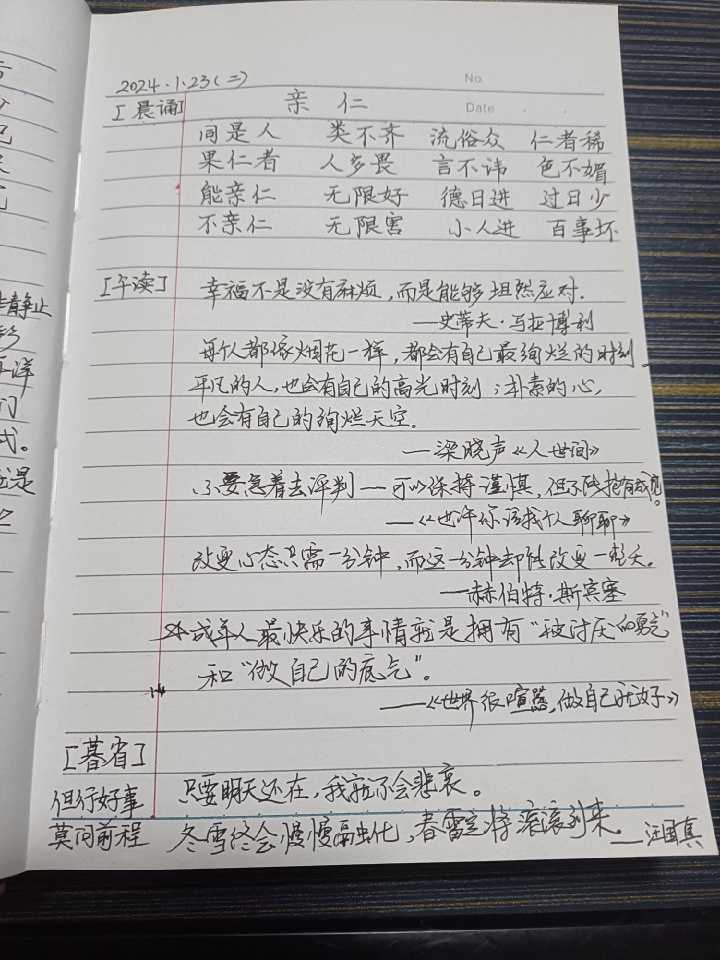 2024.1.23(二)
No.
[晨诵] 亲仁
Date
同是人 类不齐 流俗众 仁者稀
果仁者 人多畏 言不讳 色不媚
能亲仁 无限好 德日进 过日少
不亲仁 无限害 小人进 百事坏
[午读] 幸福不是没有麻烦,而是能够坦然应对.
—史蒂夫·马拉博利
每个人都像烟花一样,都会有自己最绚烂的时刻
平凡的人,也会有自己的高光时刻;朴素的心,
也会有自己的绚烂天空.
—梁晓声《人世间》
不要急着去评判—可以保持谨慎,但不能抱有成见。
—《也许你该找个人聊聊》
改变心态只需一分钟,而这一分钟却能改变一整天。
—赫伯特·斯宾塞
成年人最快乐的事情就是拥有“被讨厌的勇气”
和“做自己的底气”。
——《世界很喧嚣,做自己就好》
[暮省]
但行好事
莫问前程
只要明天还在,我就不会悲哀。
冬雪终会慢慢融化,春雷定将滚滚到来。—汪国真
静止
洋
们
式。
是